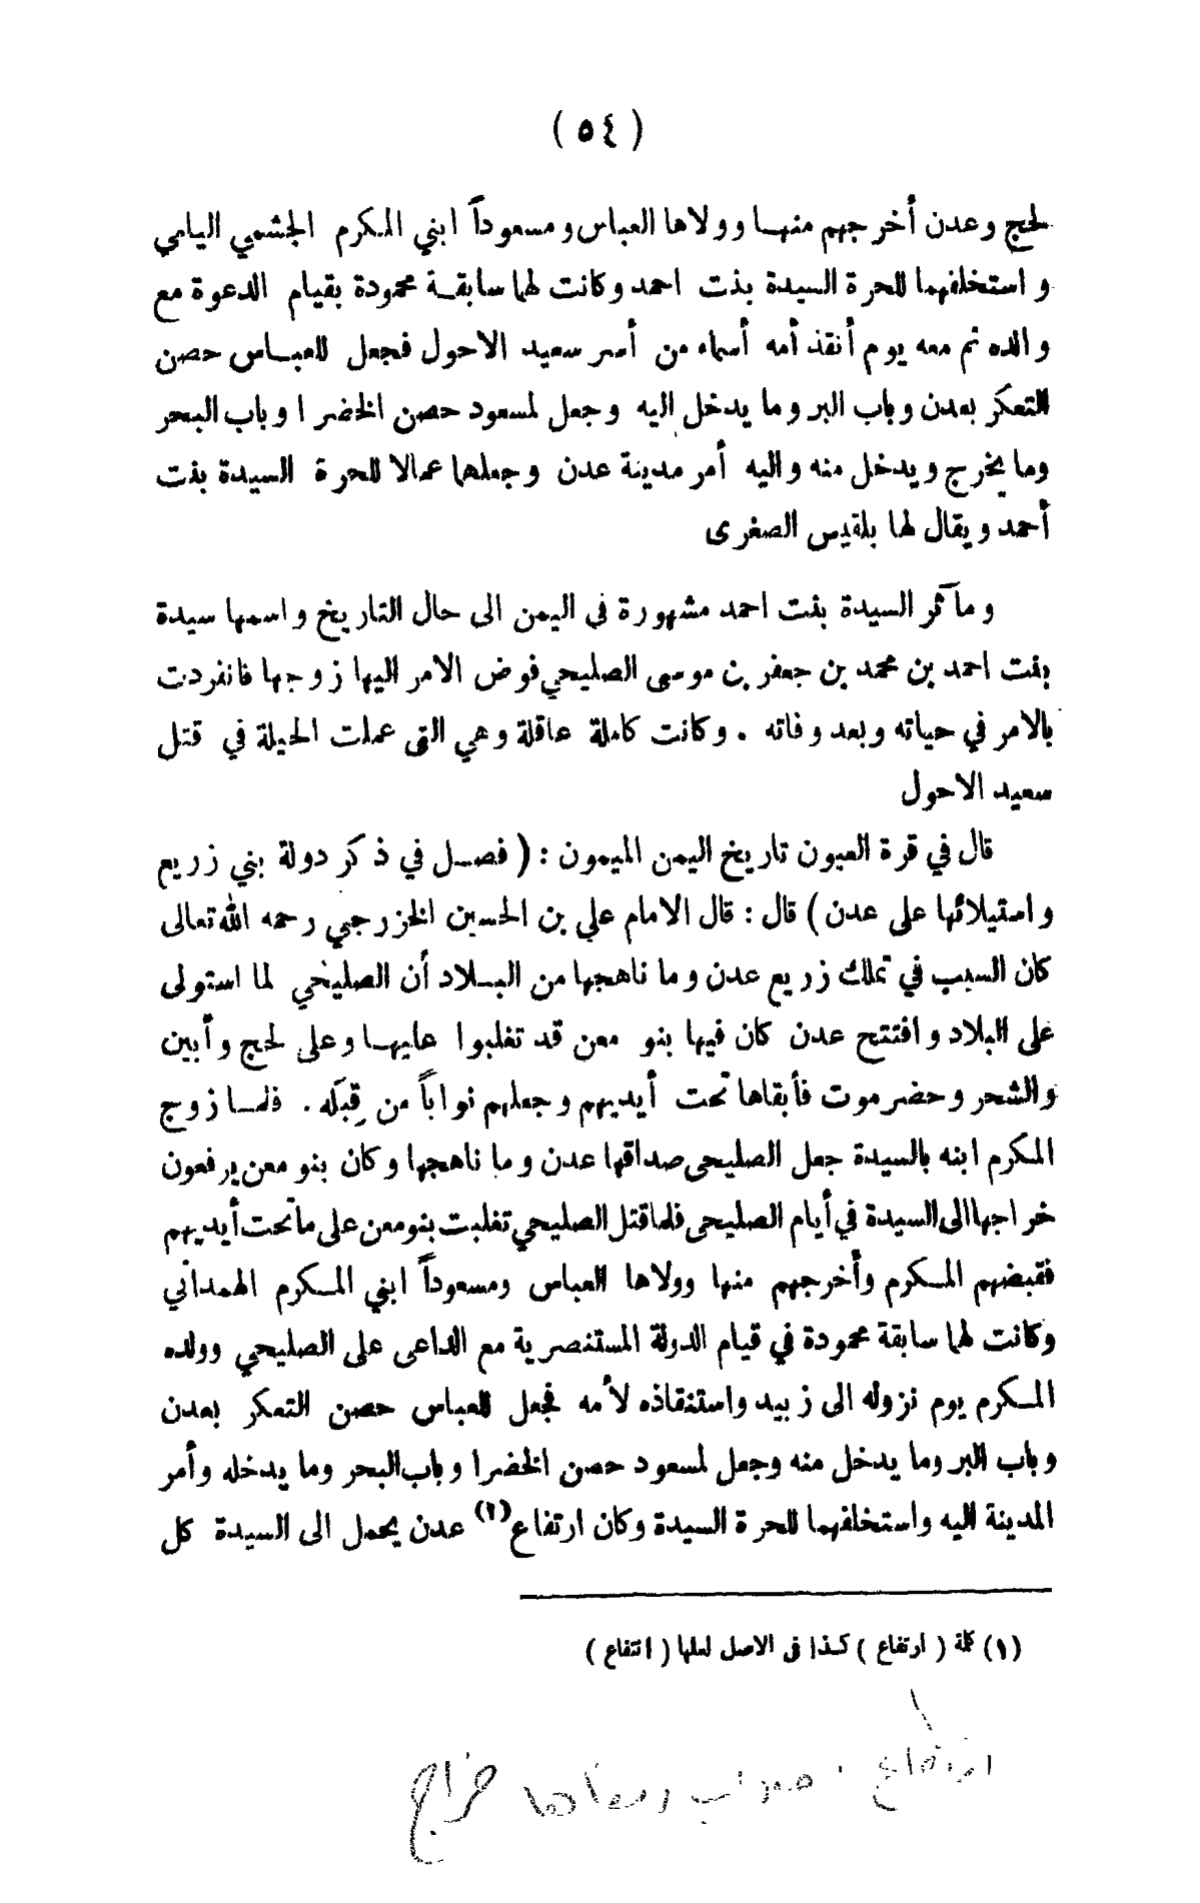 ( ٥٤ )
لحج وعدن أخرجهم منها وولاها العباس ومسعوداً ابني المكرم الجشمي اليامي
واستخلفهما للحرة السيدة بنت احمد وكانت لهما سابقة محمودة بقيام الدعوة مع
والده ثم معه يوم أنقذ أمه أسماء من أسر سعيد الاحول فجعل للعباس حصن
التعكر بعدن وباب البر وما يدخل اليه وجعل لمسعود حصن الخضرا وباب البحر
وما يخرج ويدخل منه واليه أمر مدينة عدن وجعلهما عمالا للحرة السيدة بنت
أحمد ويقال لها بلقيس الصغرى
ومآثر السيدة بنت احمد مشهورة في اليمن الى حال التاريخ واسمها سيدة
بنت احمد بن محمد بن جعفر بن موسى الصليحي فوض الامر اليها زوجها فانفردت
بالامر في حياته وبعد وفاته . وكانت كاملة عاقلة وهي التى عملت الحيلة في قتل
سعيد الاحول
قال في قرة العيون تاريخ اليمن الميمون : ( فصل في ذكر دولة بني زريع
واستيلائها على عدن ) قال : قال الامام علي بن الحسين الخزرجي رحمه الله تعالى
كان السبب في تملك زريع عدن وما ناهجها من البلاد أن الصليحي لما استولى
على البلاد وافتتح عدن كان فيها بنو معن قد تغلبوا عليها وعلى لحج وأبين
والشحر وحضرموت فأبقاها تحت أيديهم وجعلهم نواباً من قِبَله . فلما زوج
المكرم ابنه بالسيدة جعل الصليحى صداقها عدن وما ناهجها وكان بنو معن يرفعون
خراجها الى السيدة في أيام الصليحى فلما قتل الصليحي تغلبت بنو معن على ما تحت أيديهم
فقبضهم المكرم وأخرجهم منها وولاها العباس ومسعوداً ابني المكرم الهمداني
وكانت لهما سابقة محمودة في قيام الدولة المستنصرية مع الداعى على الصليحي وولده
المكرم يوم نزوله الى زبيد واستنقاذه لأمه فجعل للعباس حصن التعكر بعدن
وباب البر وما يدخل منه وجعل لمسعود حصن الخضرا وباب البحر وما يدخله وأمر
المدينة اليه واستخلفهما للحرة السيدة وكان ارتفاع (١) عدن يحمل الى السيدة كل
(١) كلمة ( ارتفاع ) كذا فى الاصل لعلها ( انتفاع )
ارتفاع : صواب ومعناها خراج